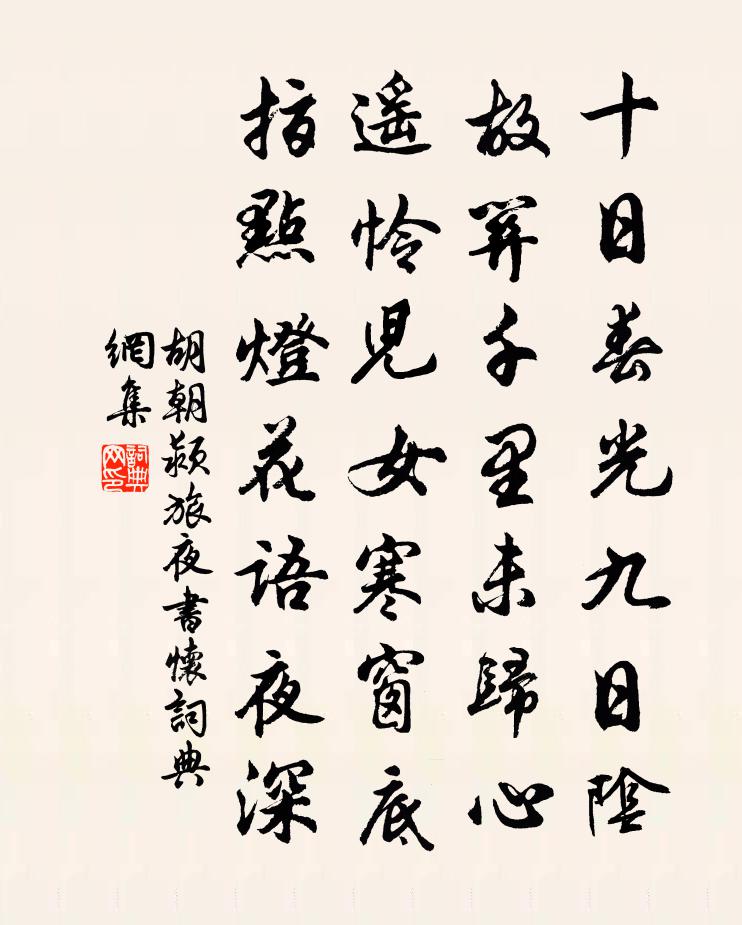 十日春光九日陰
故關千里未歸心
遙憐兒女寒窗底
指點燈花語夜深
胡朝穎旅夜書懷詞典
網集
詞典網印